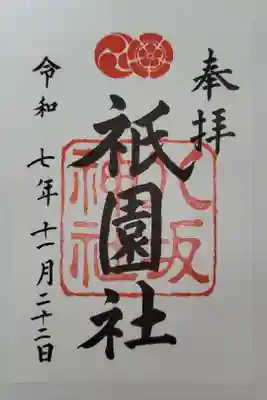 奉拝
祇園社
八坂神社
令和 七年 十一月二十二日